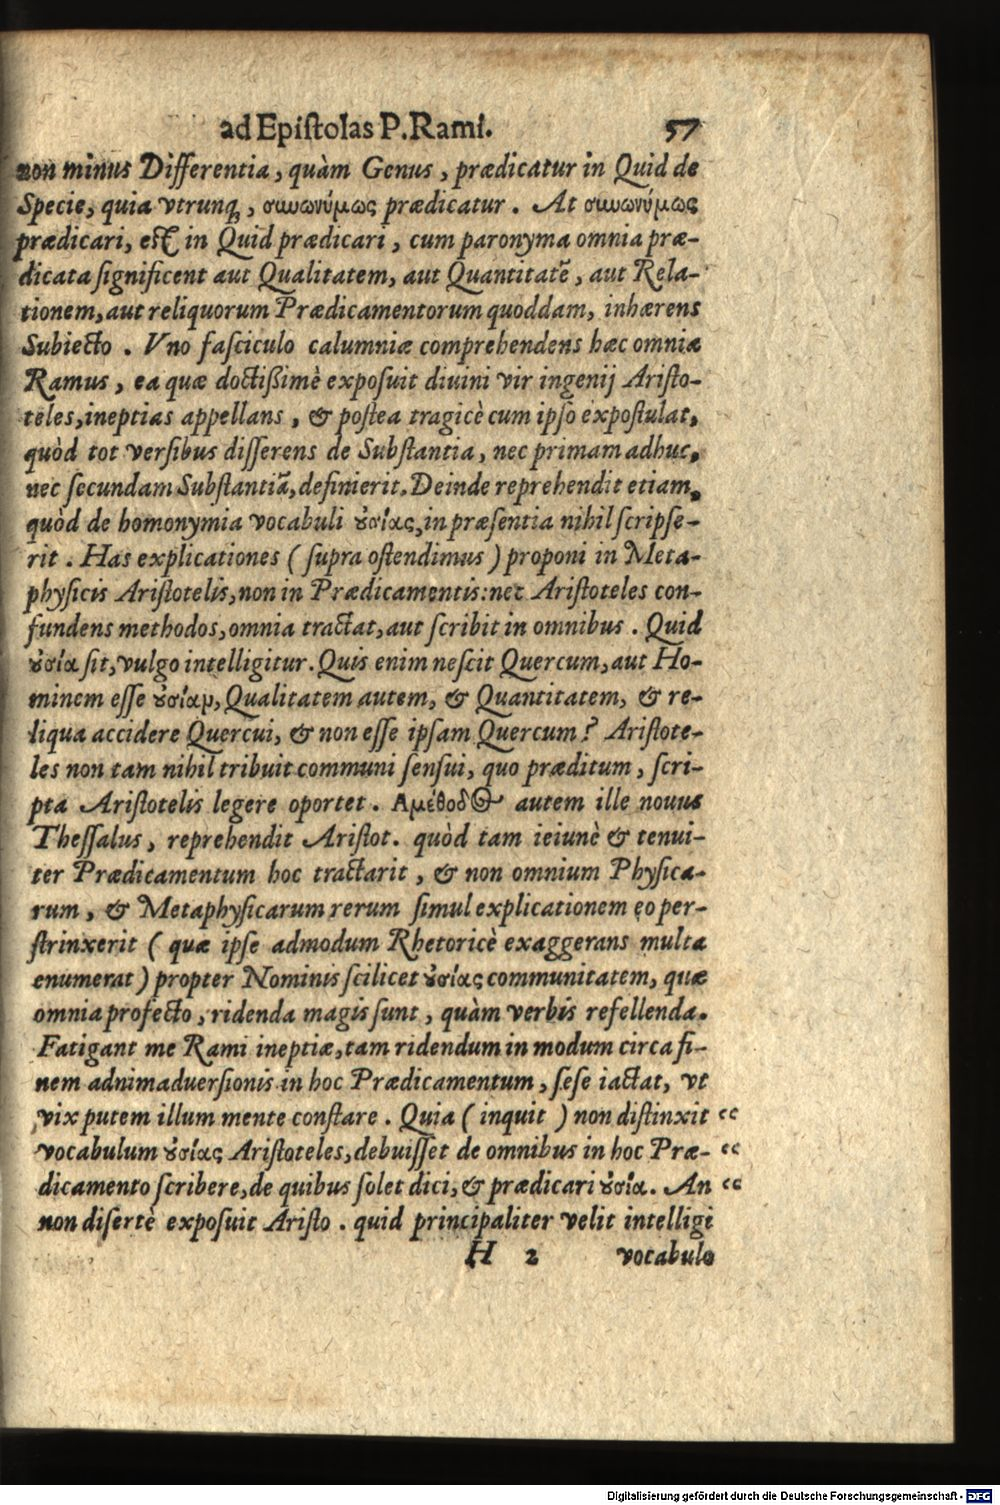 ad Epiſtolas P. Rami. 57
non minus Differentia, quàm Genus, prædicatur in Quid de
Specie, quia vtrunq;, συνωνύμως prædicatur. At συνωνύμως
prædicari, eſt in Quid prædicari, cum paronyma omnia præ-
dicata ſignificent aut Qualitatem, aut Quantitatẽ, aut Rela-
tionem, aut reliquorum Prædicamentorum quoddam, inhærens
Subiecto. Vno faſciculo calumniæ comprehendens hæc omnia
Ramus, ea quæ doctißimè expoſuit diuini vir ingenij Ariſto-
teles, ineptias appellans, & poſtea tragicè cum ipſo expoſtulat,
quòd tot verſibus diſſerens de Subſtantia, nec primam adhuc,
nec ſecundam Subſtantiã, definierit. Deinde reprehendit etiam,
quòd de homonymia vocabuli ȣσίας, in præſentia nihil ſcripſe-
rit. Has explicationes (ſupra oſtendimus) proponi in Meta-
phyſicis Ariſtotelis, non in Prædicamentis: nec Ariſtoteles con-
fundens methodos, omnia tractat, aut ſcribit in omnibus. Quid
ȣσία ſit, vulgo intelligitur. Quis enim neſcit Quercum, aut Ho-
minem eſſe ȣσίαν, Qualitatem autem, & Quantitatem, & re-
liqua accidere Quercui, & non eſſe ipſam Quercum? Ariſtote-
les non tam nihil tribuit communi ſenſui, quo præditum, ſcri-
pta Ariſtotelis legere oportet. Αμέθοδος autem ille nouus
Theſſalus, reprehendit Ariſtot. quòd tam ieiunè & tenui-
ter Prædicamentum hoc tractarit, & non omnium Phyſica-
rum, & Metaphyſicarum rerum ſimul explicationem eo per-
ſtrinxerit (quæ ipſe admodum Rhetoricè exaggerans multa
enumerat) propter Nominis ſcilicet ȣσίας communitatem, quæ
omnia profecto, ridenda magis ſunt, quàm verbis refellenda.
Fatigant me Rami ineptiæ, tam ridendum in modum circa fi-
nem adnimaduerſionis in hoc Prædicamentum, ſeſe iactat, vt
vix putem illum mente conſtare. Quia (inquit) non diſtinxit “
vocabulum ȣσίας Ariſtoteles, debuiſſet de omnibus in hoc Præ- “
dicamento ſcribere, de quibus ſolet dici, & prædicari ȣσία. An “
non diſertè expoſuit Ariſto. quid principaliter velit intelligi
H 2 vocabulo
Digitalisierung gefördert durch die Deutsche Forschungsgemeinschaft - DFG